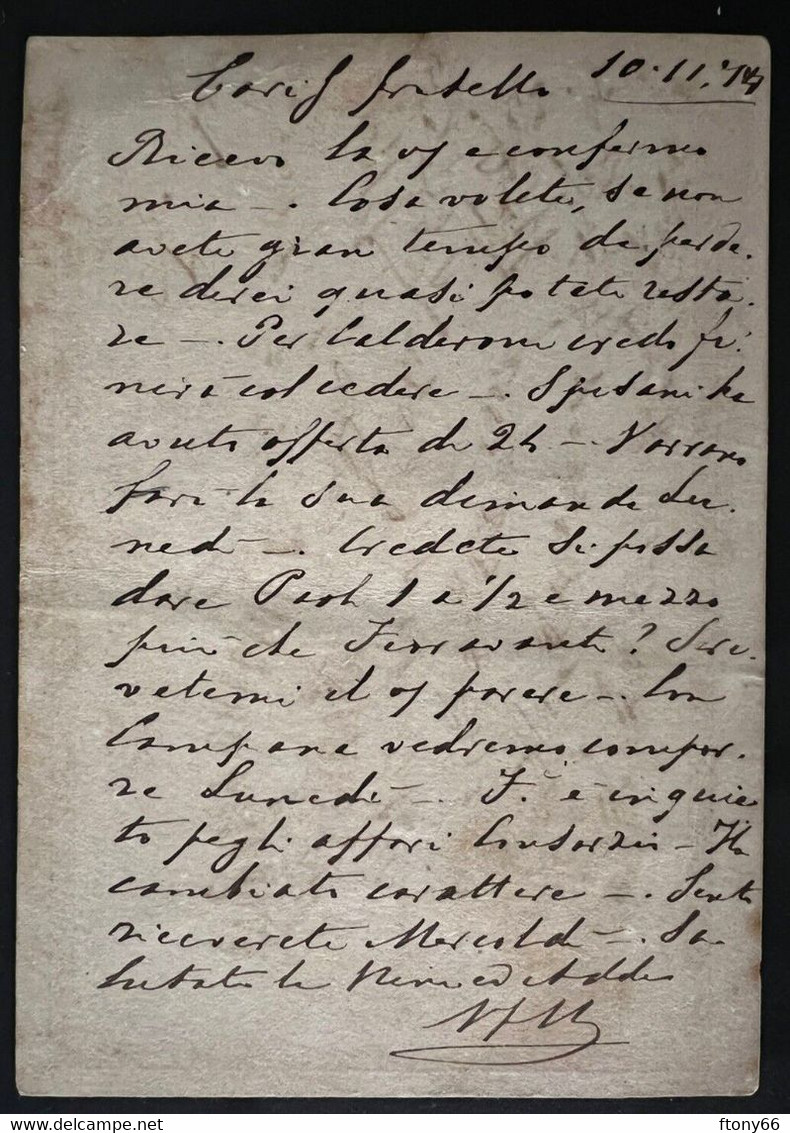 10.11.'74
Caris fratello
Ricevo la vs e confermo
mia —. Cosa volete, se non
avete gran tempo da perde.
re direi quasi potete resta.
re —. Per Calderoni credo fi.
nirà col cedere —. Spesani ha
avuto offerta di 24 —. Varrano
farà la sua dimanda Lu.
nedì —. Credete si possa
dare Paoli 1 a 1/2 e mezzo
più che Fioravanti? Scri.
vetemi il vs parere —. Con
Campana vedremo compor.
re Lunedì —. F. è inquie
to pegli affari Consorzio — Ha
cambiato carattere —. Sento
riceverete Mercoldì —. Sa
lutate la Nina ed Addio